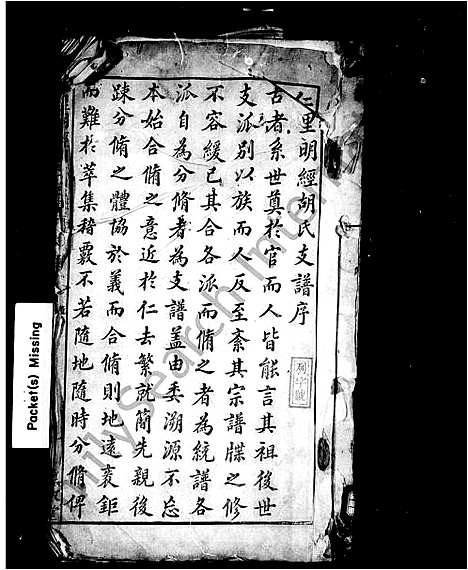 仁里明經胡氏支譜序
古者系世奠於官而人皆能言其祖後世
支派別以族而人反至紊其宗譜牒之修
不容緩已其合各派而脩之者為統譜各
派自為分脩者為支譜蓋由委溯源不忘
本始合脩之意近於仁去繁就簡先親後
踈分脩之體協於義而合脩則地遠袤鉅
而難於萃集稽覈不若隨地隨時分脩俾
列字號
Packet(s) Missing